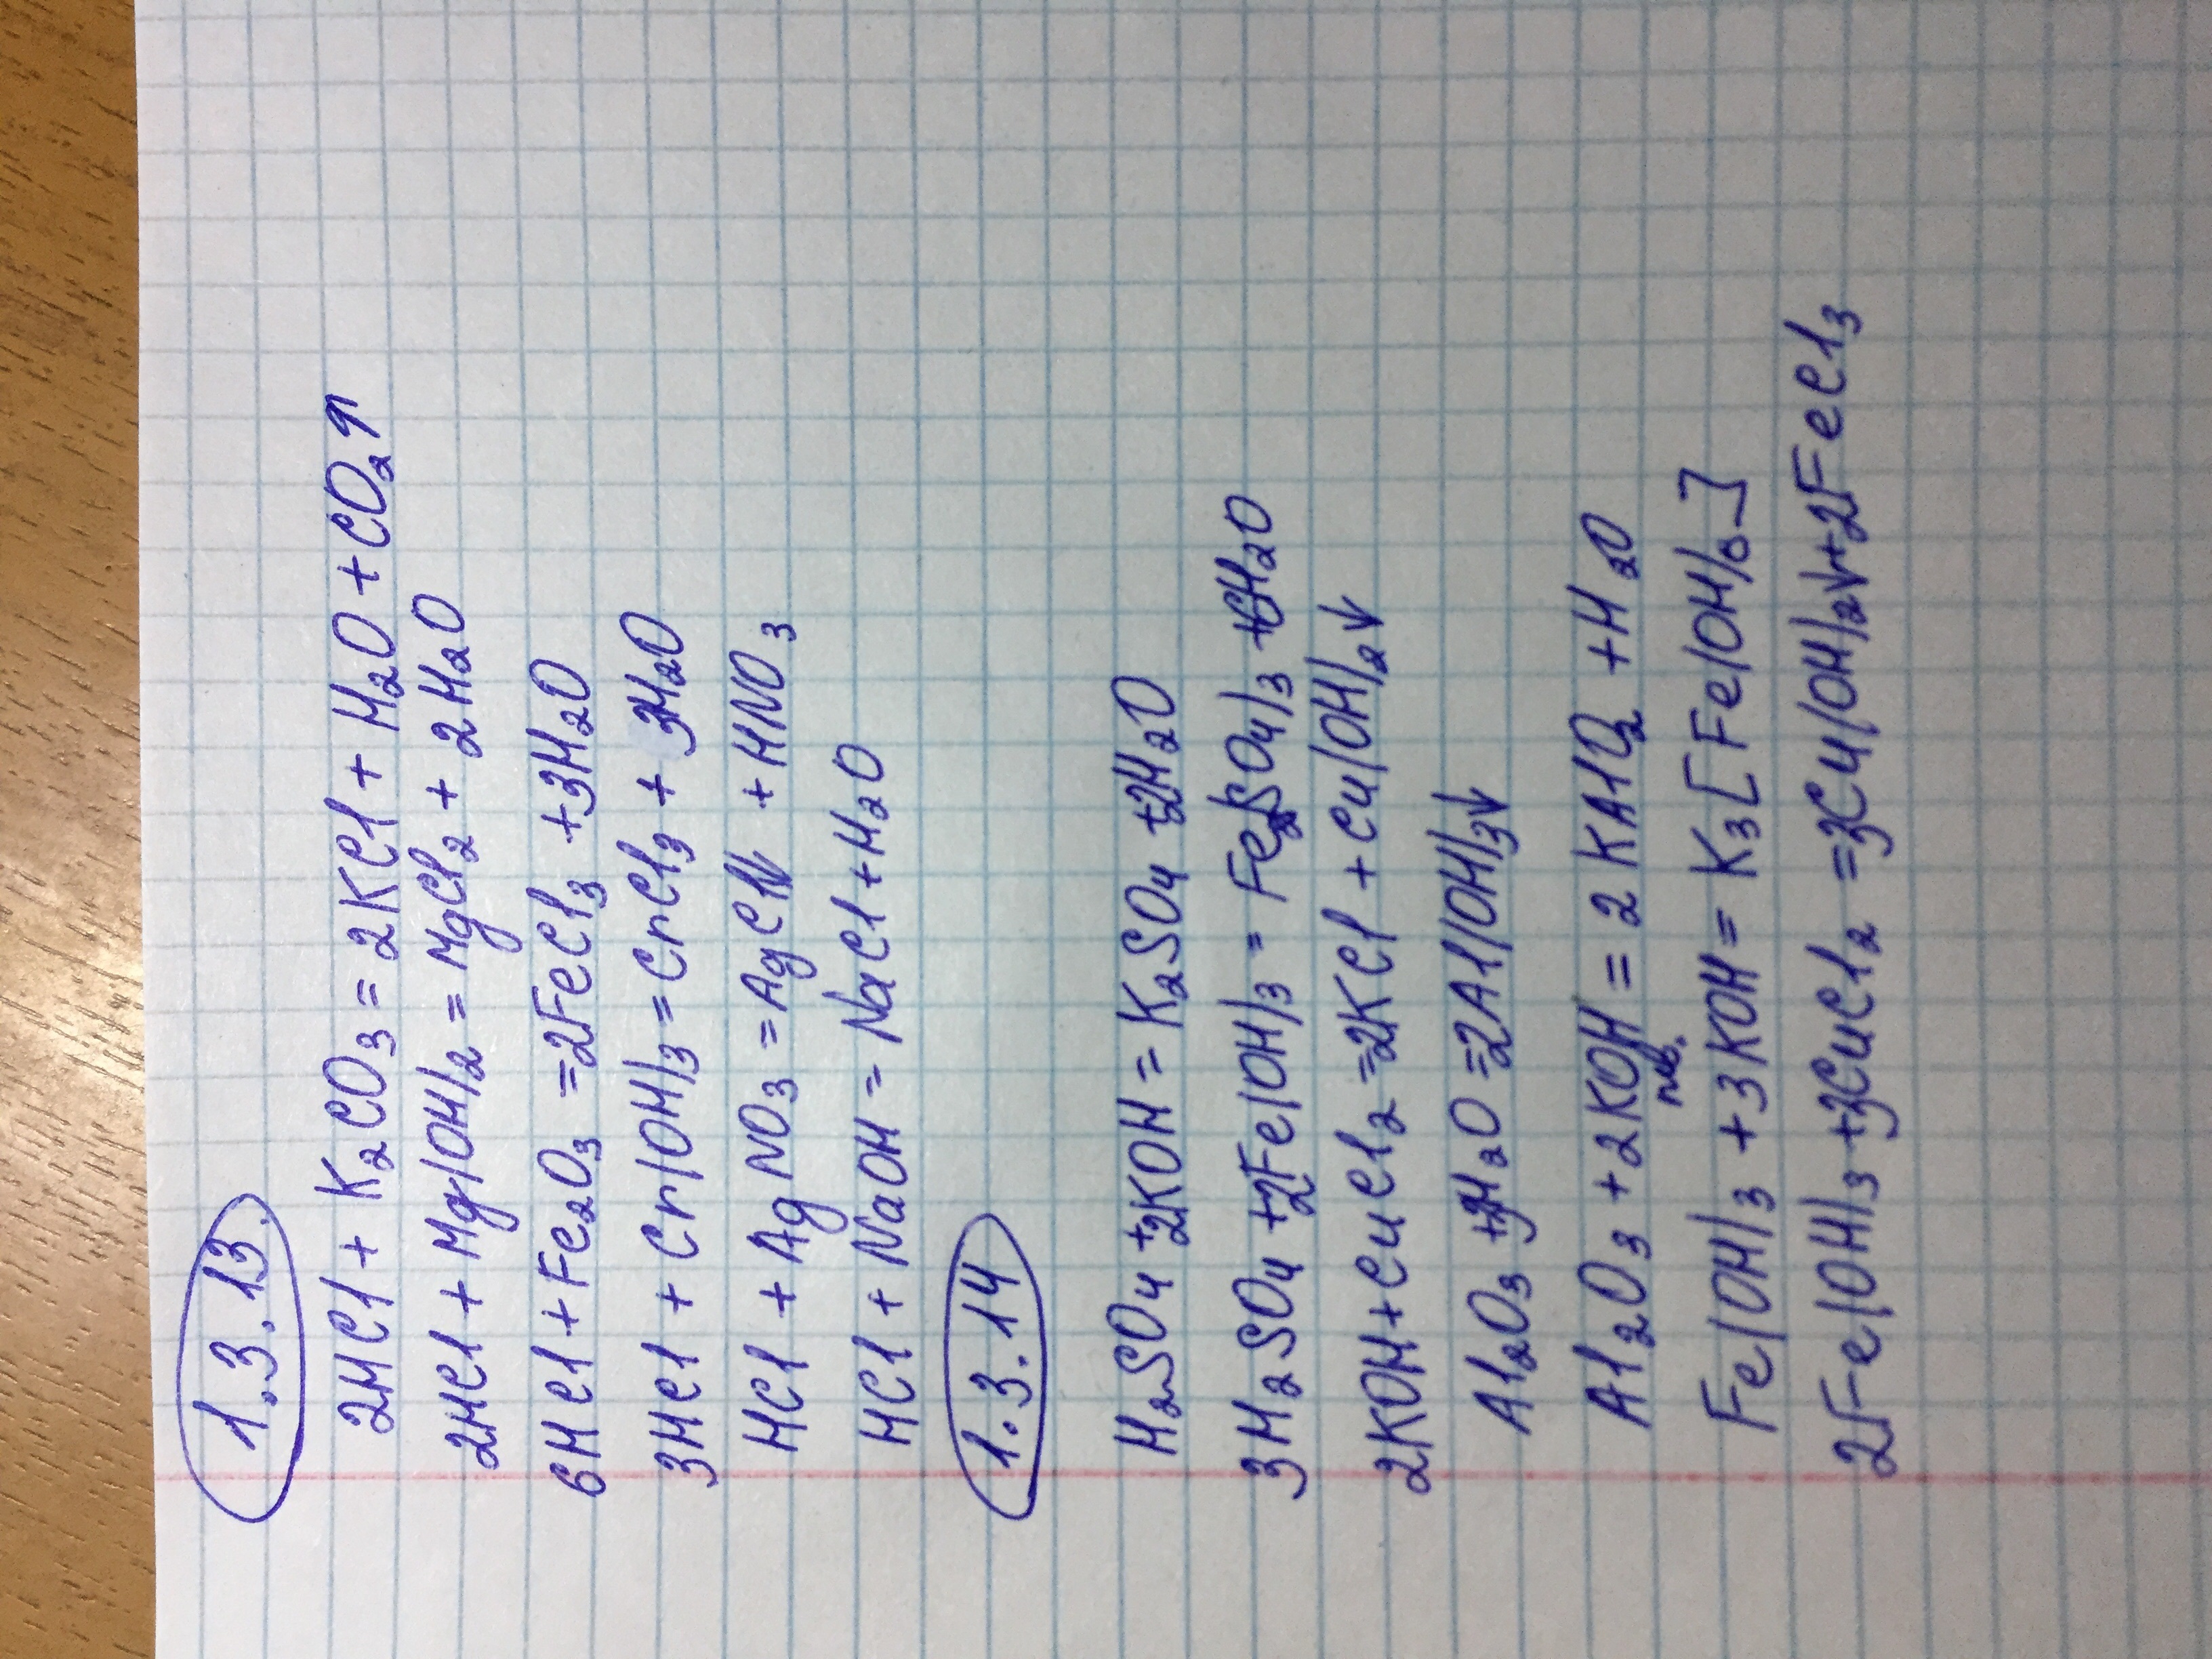 1.3.13.
2HCl + K₂CO₃ = 2KCl + H₂O + CO₂↑
2HCl + Mg(OH)₂ = MgCl₂ + 2H₂O
6HCl + Fe₂O₃ = 2FeCl₃ + 3H₂O
3HCl + Cr(OH)₃ = CrCl₃ + 3H₂O
HCl + AgNO₃ = AgCl↓ + HNO₃
HCl + NaOH = NaCl + H₂O
1.3.14
H₂SO₄ + 2KOH = K₂SO₄ + 2H₂O
3H₂SO₄ + 2Fe(OH)₃ = Fe₂(SO₄)₃ + 6H₂O
2KOH + CuCl₂ = 2KCl + Cu(OH)₂↓
Al₂O₃ + 3H₂O = 2Al(OH)₃↓
Al₂O₃ + 2KOH = 2KAlO₂ + H₂O
пл.
Fe(OH)₃ + 3KOH = K₃[Fe(OH)₆]
2Fe(OH)₃ + 3CuCl₂ = 3Cu(OH)₂↓ + 2FeCl₃